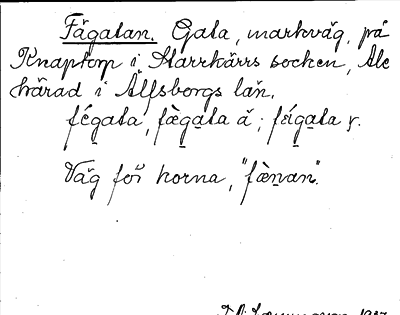 Fägatan. Gata, markväg, på
Knaptorp i Starrkärrs socken, Ale
härad i Älfsborgs län.
fégata, fægata ä; feígata y.
Väg för korna, "fænan".